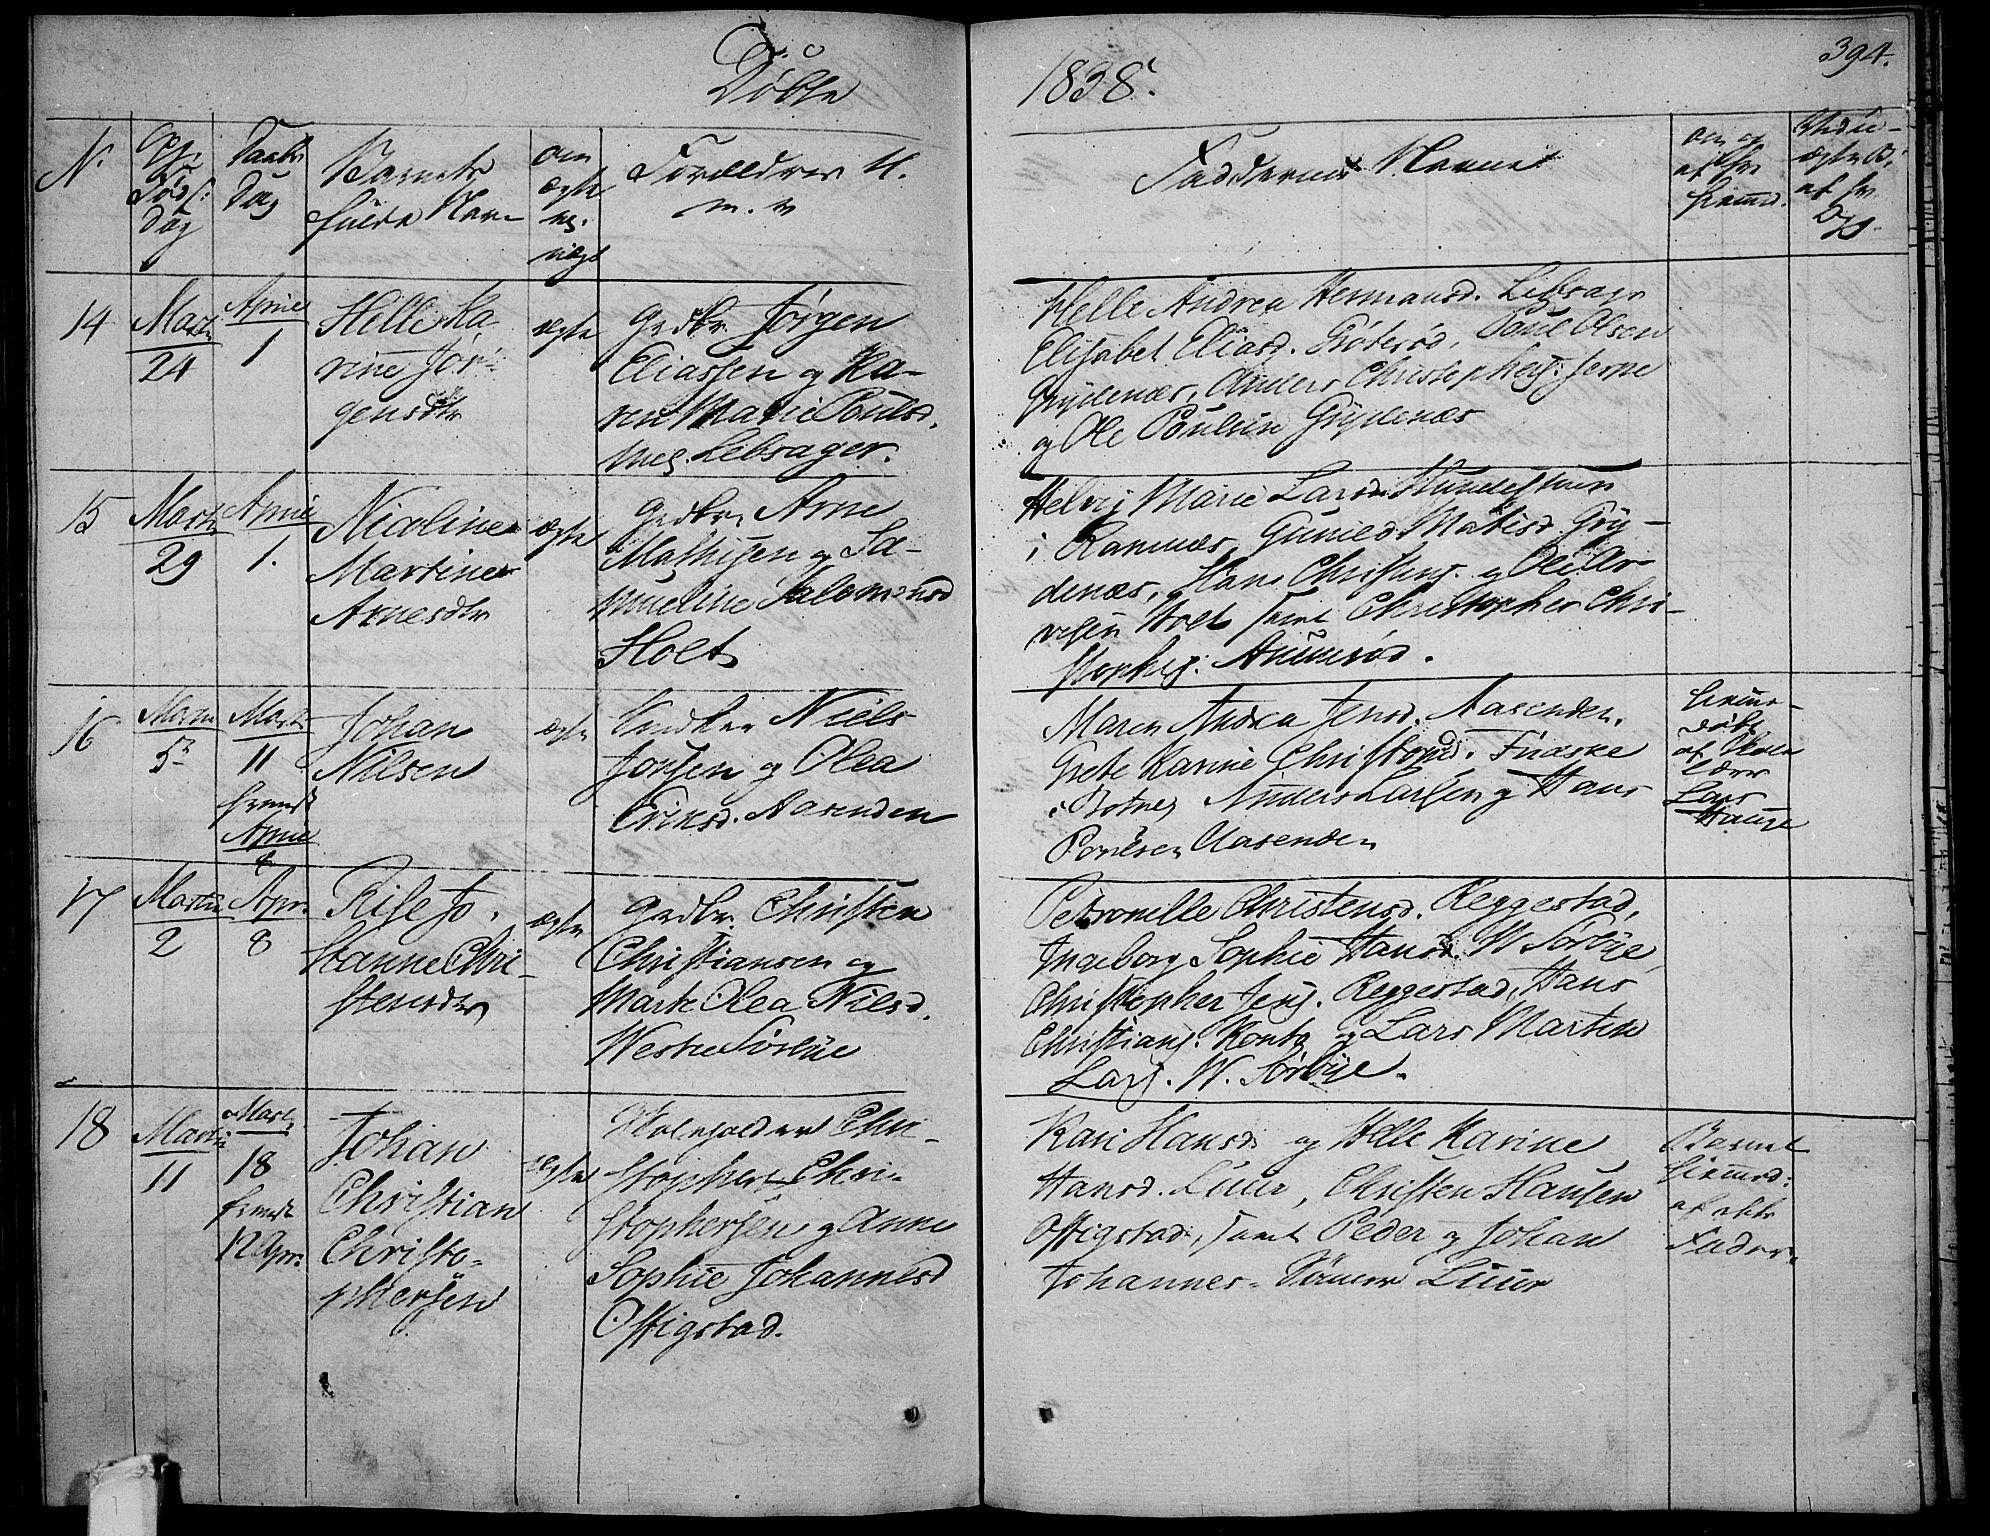 Døbte
1838.
394.
N.
Dag
Daabs
Dag
Barnets
fulde Navn
Om
ægte
Forældres N.
m. v.
Faddernes Navne
om og
af hv.
hiemd.
14
Martii
24
April
1
Helle Ka-
rine Jør-
gensdtr
ægte
Grdbr. Jørgen
Eliassen og Ka-
ren Marie Poulsd.
Lebsager.
Helle Andrea Hermansd. Lebsager
Elisabet Eliasd. Röterød, Poul Olsen
Grydenæs, Anders Christophers. Jerpe
og Ole Poulsen Grydenæs
15
Martii
29
April
1.
Nicoline
Martine
Arnesdtr
ægte
Grdbr. Arne
Mathisen og Sa-
mueline Salomonsd
Holt
Helvig Marie Larsd.
i Ramnæs, Gunild Matisd. Gry-
denæs, Hans Christens. og Ole Ar-
vesen Holt samt Christopher Chri-
stophers. Aunerød.
16
Martii
5
Martii
11
hiemd
April
Johan
Nilsen
ægte
Niels
Jonsen og Olea
Eriksd. Aasenden
Maren Andrea Jensd. Aasenden,
Grete Karine Christensd.
i Botne, Anders Larsen og Hans
Poulsen Aasenden
hieme-
døbt
af Skole
lærer
Lars
Hauge
17
Martii
2
Apr.
8
Rise Jo-
hanne Chri-
stensdtr
ægte
Grdbr. Christen
Christiansen og
Marte Olea Nielsd.
Westre Sörbye
Petronille Christensd. Reggestad,
Ingeborg Sophie Hansd. W. Sörbye,
Christopher Jens. Reggestad, Hans
Christians. og Lars Martin
Lars. W. Sörbye.
18
Martii
11
Martii
18
hiemd
12 Apr.
Johan
Christian
Christo-
phersen
ægte
Skoleholder Chri-
stopher Chri-
stophersen og Anne
Sophie Johannesd
Offigstad.
Kari Hansd. og Helle Karine
Hansd. Luur, Christen Hansen
Offigstad, samt Peder og Johan
Johannes-Sönner Luur
Barnet
hiemmd:
af dets
Fader.